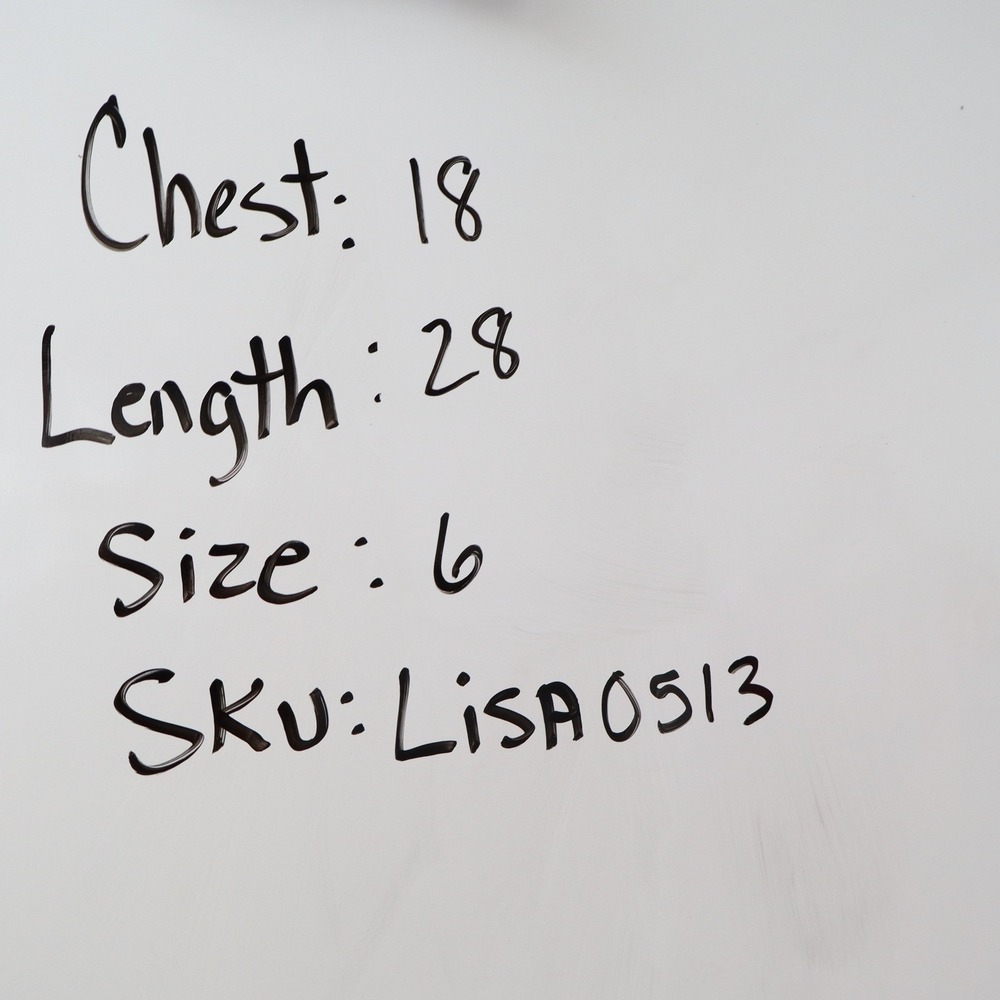 Chest: 18
Length: 28
Size: 6
SKU: LiSA0513